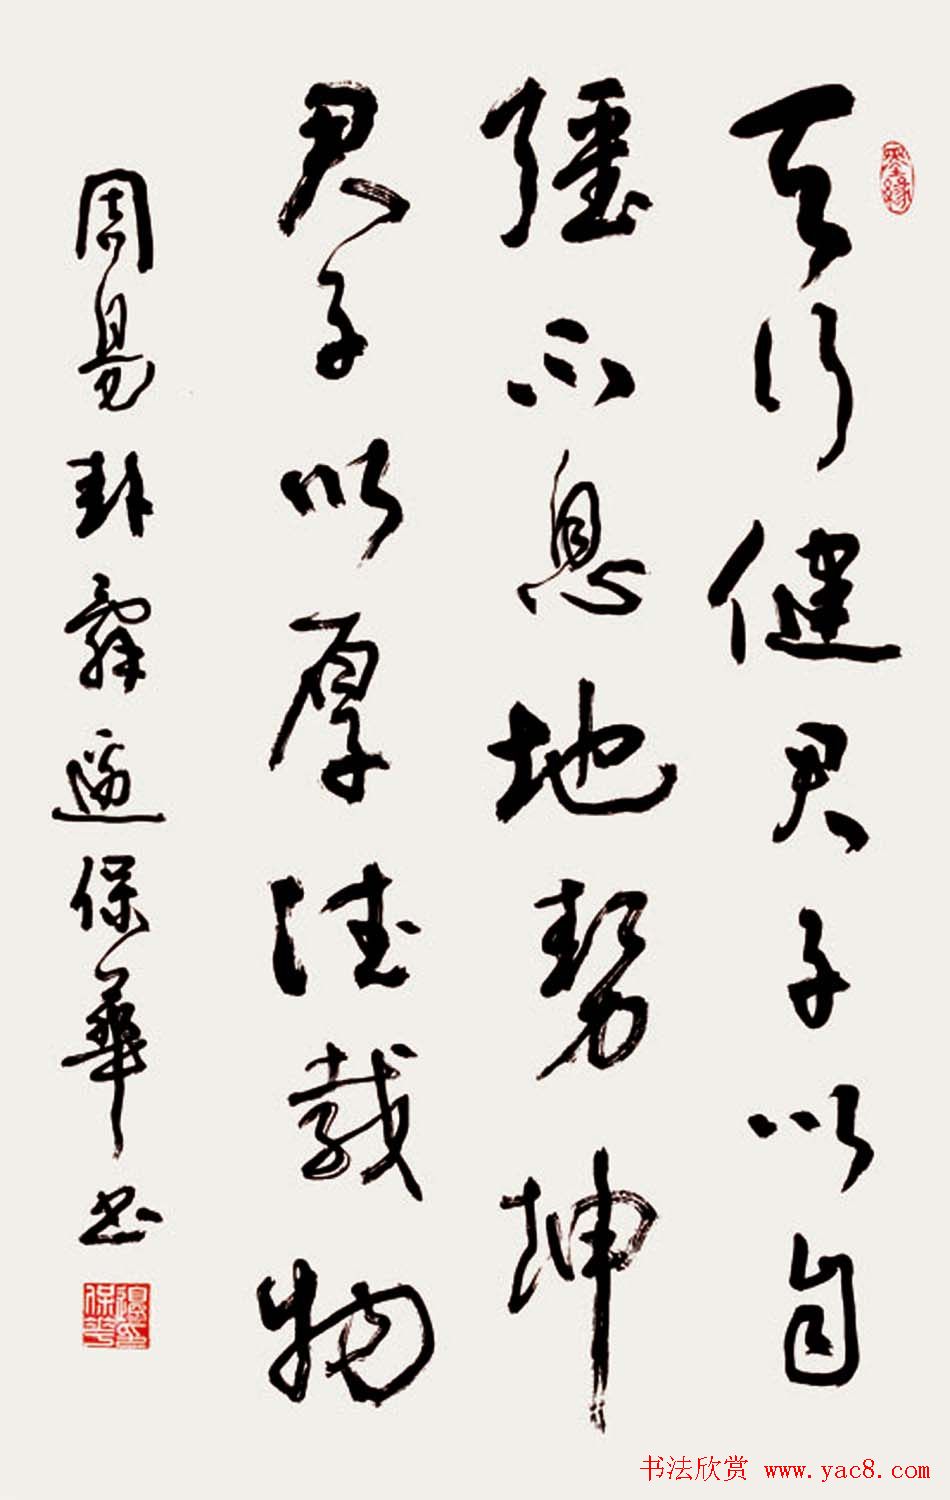 天行健君子以自
彊不息地势坤
君子以厚德载物
周易卦辭邊保華书
書法欣赏 www.yac8.com